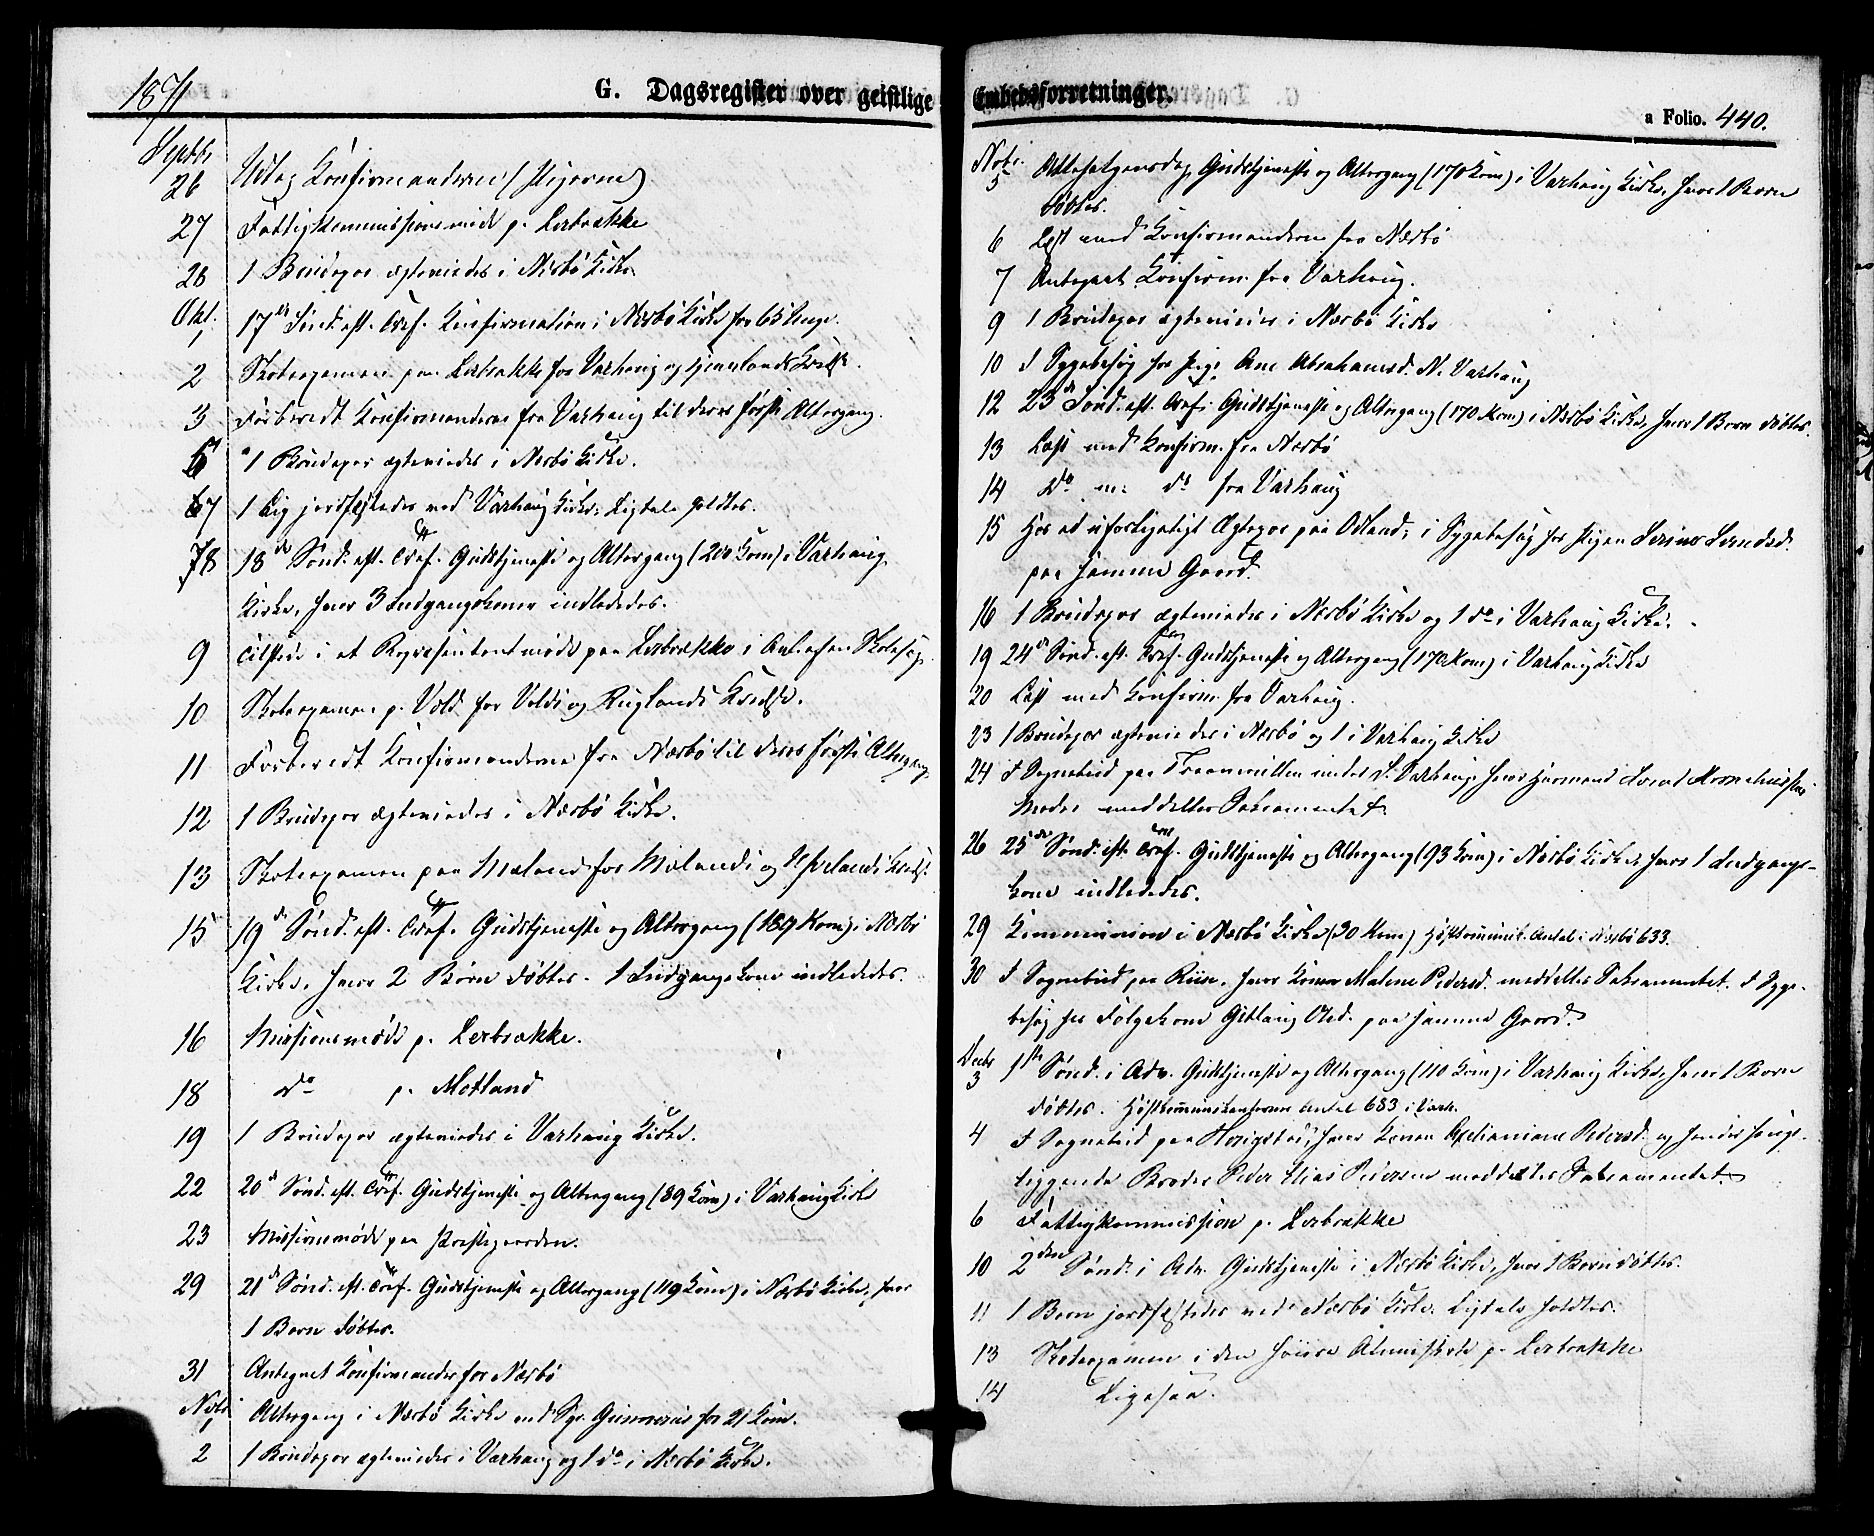 1871
G. Dagsregister over geistlige Embedsforretninger.
a Folio. 440.
Septbr
26 Udtog Konfirmanderne (Pigerne)
27 Fattigkommissionsmøde p. Lerbrække
28 1 Brudepar ægteviedes i Nærbø Kirke
Okt.
1 17de Sønd. eft. Tref. Konfirmation i Nærbø Kirke for 65 Unge.
2 Skoleexamen paa Lerbrække for Varhaug og Kreds.
3 Forberedt Konfirmanderne fra Varhaug til deres første Altergang.
5 1 Brudepar ægteviedes i Nærbø Kirke.
7 1 Lig jordfæstedes ved Varhaug Kirke, Ligtale holdtes.
8 18de Sønd. eft. Tref. Gudstjeneste og Altergang (210 Kom) i Varhaug
Kirke, hvor 3 Indgangskoner indlededes.
9 Tilstede i et Repræsentantmøde paa Lerbrække i Anl. af en Skolesag.
10 Skoleexamen p. Vold for Volds og Auglands Kredse.
11 Forberedt Konfirmanderne fra Nærbø til deres første Altergang
12 1 Brudepar ægteviedes i Nærbø Kirke.
13 Skoleexamen paa Mæland for Mælands og Kreds.
15 19de Sønd. eft. Tref. Gudstjeneste og Altergang (189 Kom) i Nærbø
Kirke, hvor 2 Børn døbtes. 1 Indgangskone indlededes.
16 Missionsmøde p. Lerbrække.
18 do p. Motland
19 1 Brudepar ægteviedes i Varhaug Kirke.
22 20de Sønd. eft. Tref. Gudstjeneste og Altergang (89 Kom) i Varhaug Kirke
23 Missionsmøde paa Præstegaarden.
29 21de Sønd. eft. Tref. Gudstjeneste og Altergang (119 Kom) i Nærbø Kirke, hvor
1 Barn døbtes.
31 Antegnet Konfirmander for Nærbø
Novbr
1 Altergang i Nærbø Kirke ved Sgp. for 21 Kom.
2 1 Brudepar ægteviedes i Varhaug og 1 do i Nærbø Kirke.
Novbr.
5 Allehelgensdag Gudstjeneste og Altergang (170 Kom) i Varhaug Kirke, hvor 1 Barn
døbtes.
6 Læst med Konfirmanderne fra Nærbø
7 Antegnet Konfirm. fra Varhaug.
9 1 Brudepar ægteviedes i Nærbø Kirke
10 I Sygebesøg hos Pige Ane Abrahamsd. N. Varhaug
12 23de Sønd. eft. Tref. Gudstjeneste og Altergang (170 Kom) i Nærbø Kirke, hvor 1 Barn døbtes.
13 Læst med Konfirm. fra Nærbø
14 do m. do fra Varhaug
15 Hos et uforligeligt Ægtepar paa Odland; i Sygebesøg hos Pigen
paa samme Gaard.
16 1 Brudepar ægteviedes i Nærbø Kirke og 1 do i Varhaug Kirke.
19 24de Sønd. eft. Tref. Gudstjeneste og Altergang (170 Kom) i Varhaug Kirke
20 Læst med Konfirm. fra Varhaug.
23 1 Brudepar ægteviedes i Nærbø og 1 i Varhaug Kirke
24 I Sognebud paa under S. Varhaug, hvor Huusmand
Moder meddeltes Sakramentet.
26 25de Sønd. eft. Tref. Gudstjeneste og Altergang (93 Kom) i Nærbø Kirke, hvor 1 Indgangs-
kone indlededes.
29 Kommunion i Nærbø Kirke (20 Kom) Høstkommunik. Antal i Nærbø 633.
30 I Sognebud paa Riise, hvor Konen Malene Pedersd. meddeltes Sakramentet. I Syge-
besøg hos Følgekone Gitlaug Olsd. paa samme Gaard.
Decbr
3 1ste Sønd. i Adv. Gudstjeneste og Altergang (110 Kom) i Varhaug Kirke, hvor 1 Barn
døbtes. Høstkommunikanternes Antal 683 i Varh.
4 I Sognebud paa hvor Konen Pedersd. og hendes senge-
liggende Broder Peder Elias Pedersen meddeltes Sakramentet
6 Fattigkommission p. Lerbrække
10 2den Sønd. i Adv. Gudstjeneste i Nærbø Kirke, hvor 1 Barn døbtes.
11 1 Barn jordfæstedes ved Nærbø Kirke. Ligtale holdtes.
13 Skoleexamen i den høiere Almueskole p. Lerbrække
14 Ligesaa.